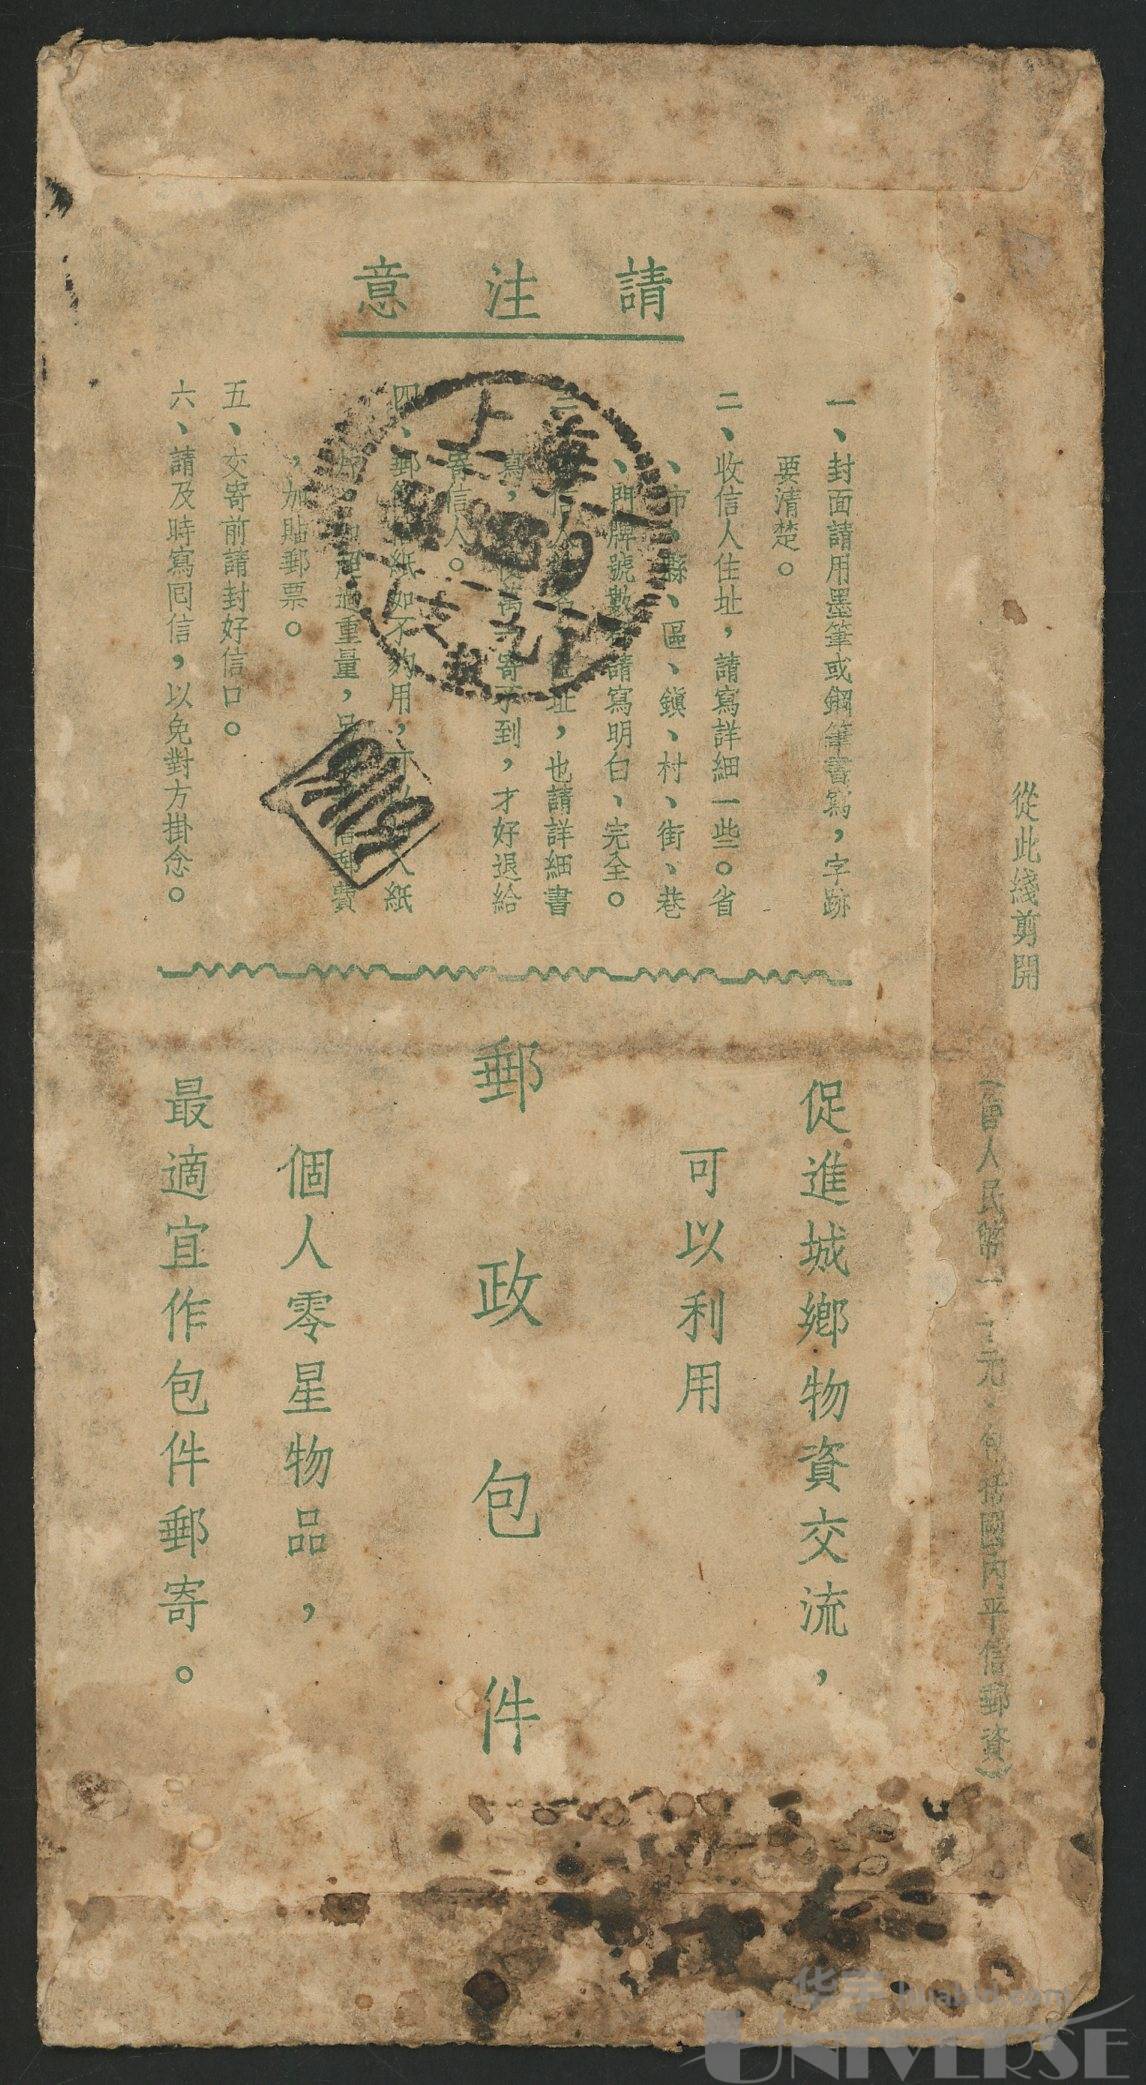 請注意
一、封面請用墨筆或鋼筆書寫，字跡
要清楚。
二、收信人住址，請寫詳細一些。省
、市、縣、區、鎮、村、街、巷
、門牌號數，請寫明白、完全。
三、信人址，也請詳細書
寫，寄不到，才好退給
寄信人。
四、郵紙如不夠用，可紙
超過重量，郵費
，加貼郵票。
五、交寄前請封好信口。
六、請及時寫囘信，以免對方掛念。
促進城鄉物資交流，
可以利用
郵政包件
個人零星物品，
最適宜作包件郵寄。
從此綫剪開
人民幣元·包括國內平信郵資)
上海
华宇 huabid.com
UNIVERSE